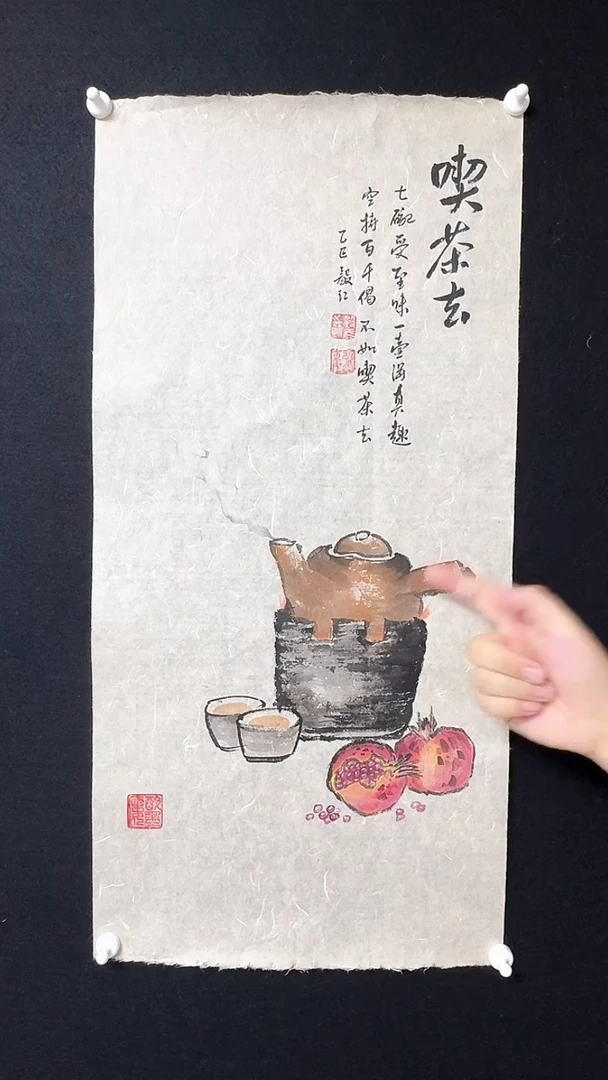 喫茶去
七碗受至味 一壺得真趣
空持百千偈 不如喫茶去
乙巳 毅